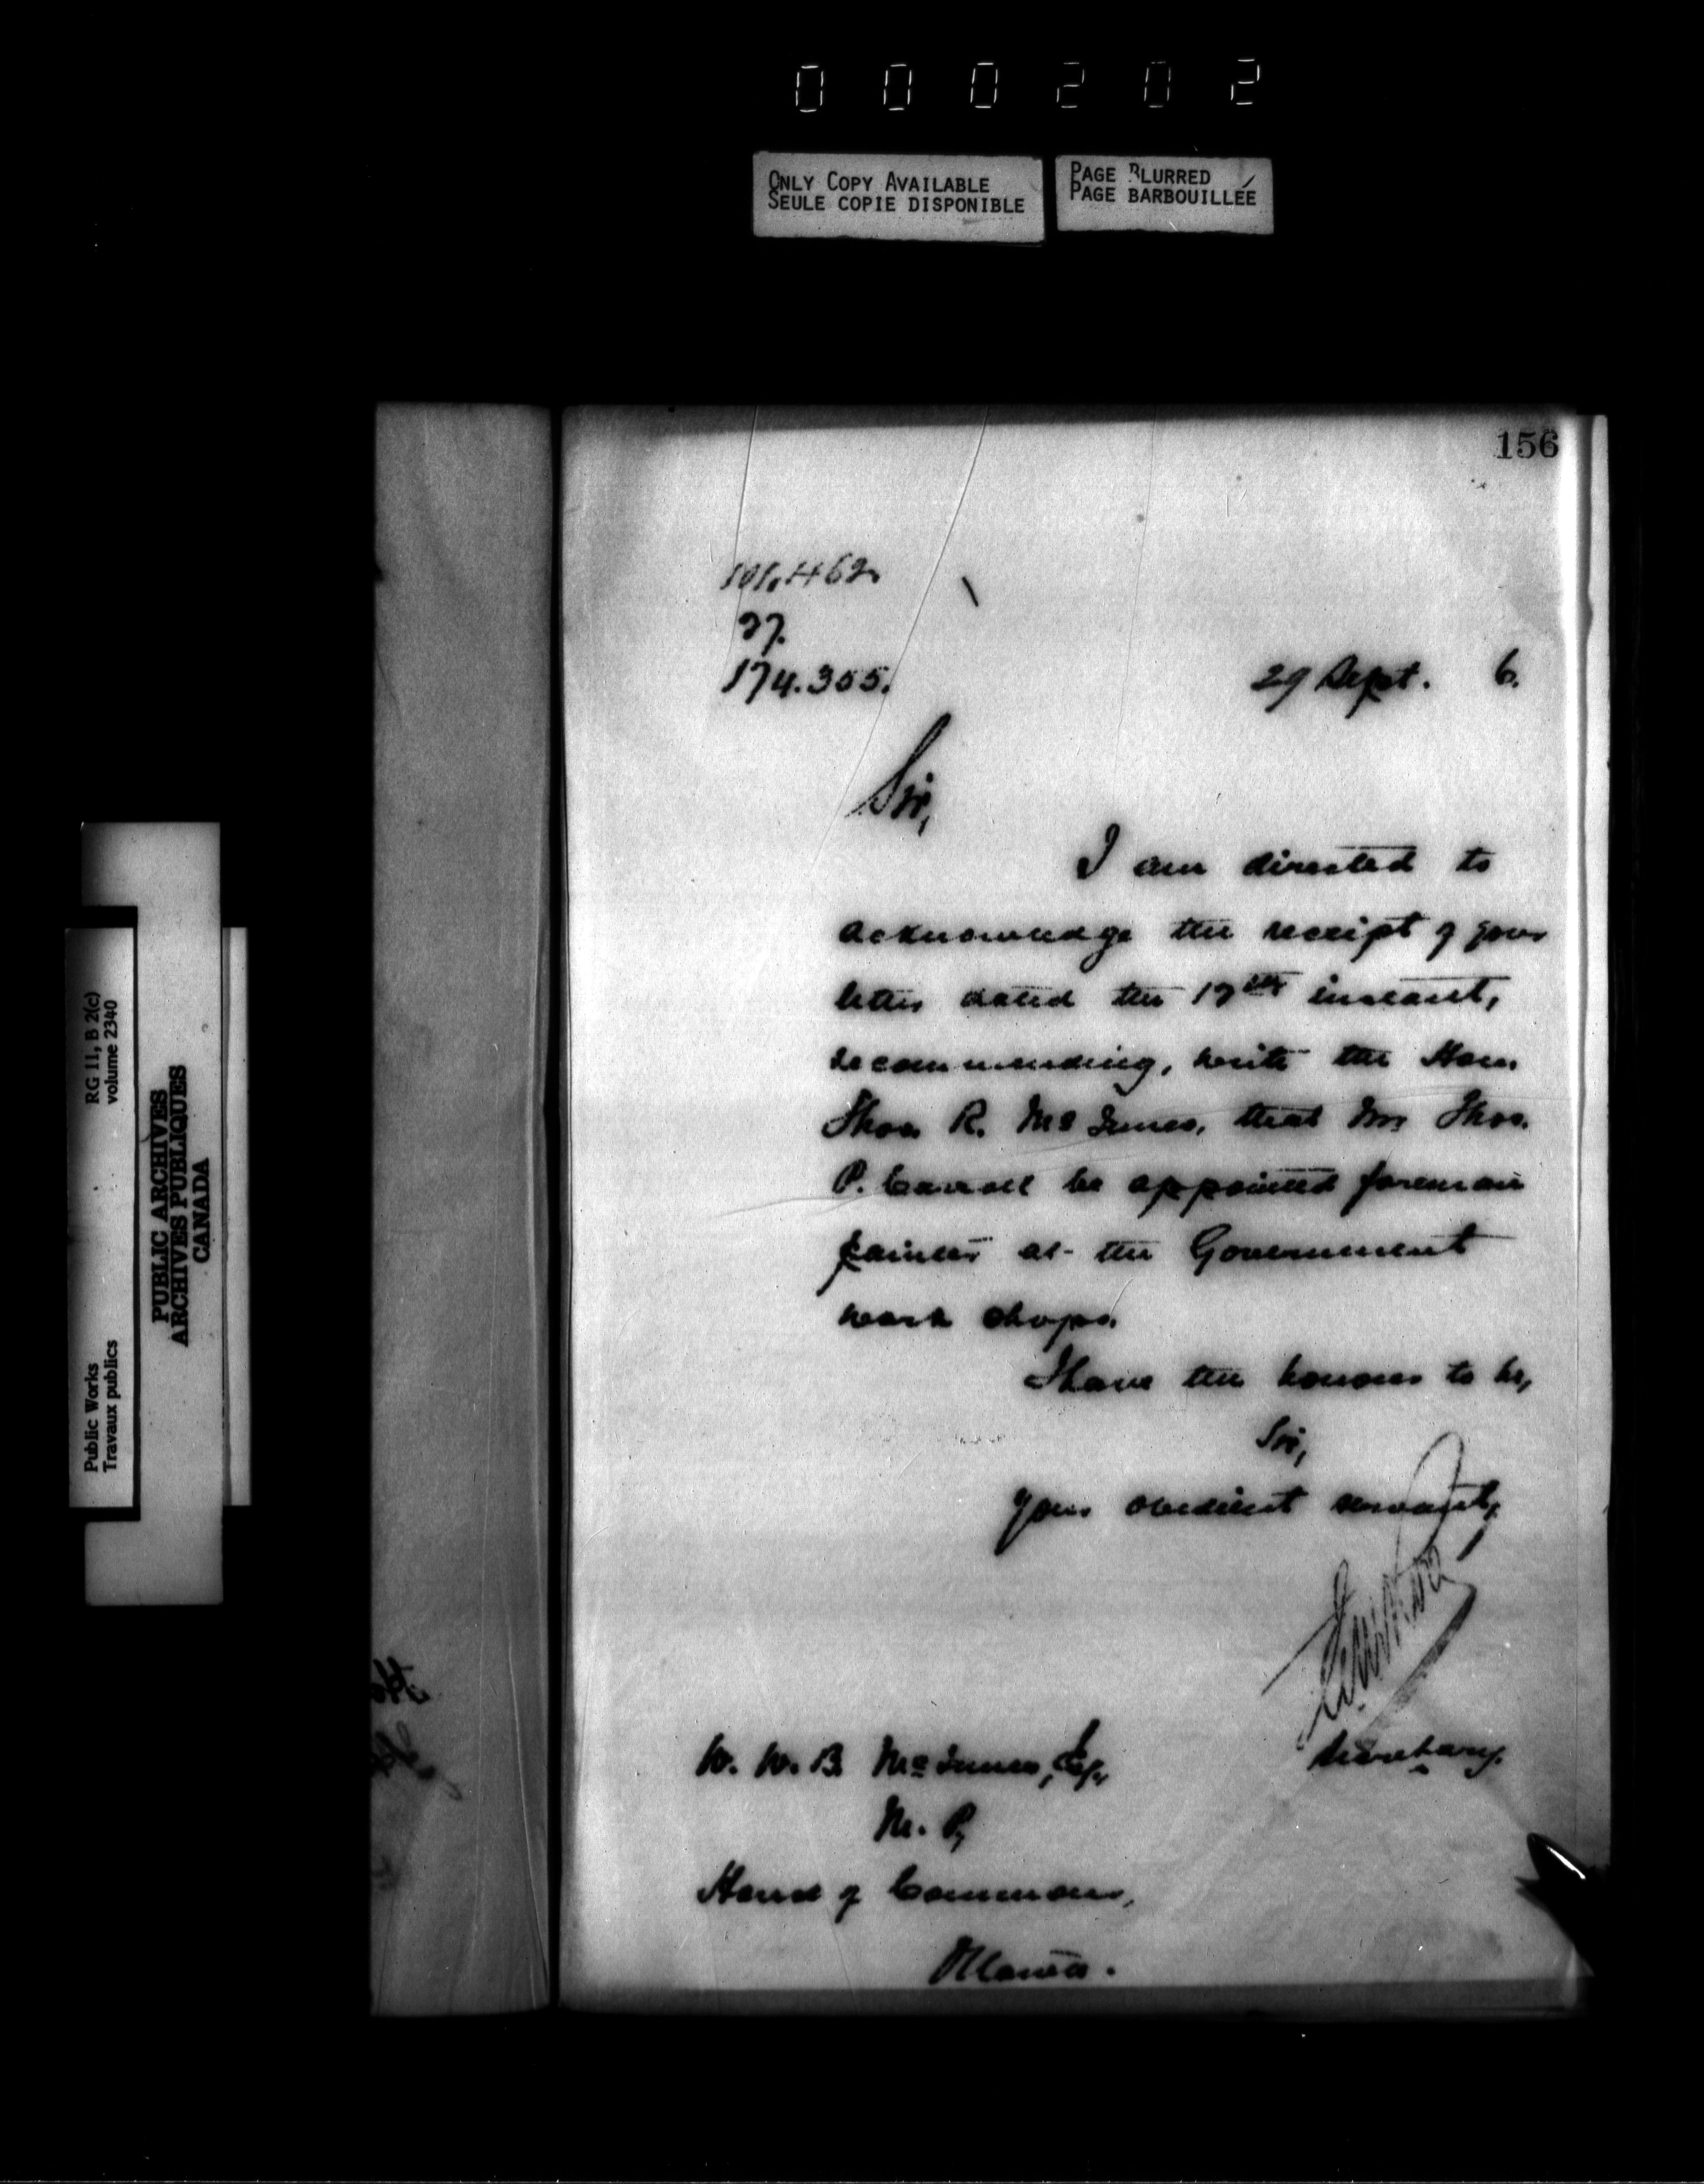 000202
ONLY COPY AVAILABLE
SEULE COPIE DISPONIBLE
PAGE BLURRED
PAGE BARBOUILLÉE
156
27.
174.355.
29 Sept. 6.
Sir,
I am directed to
acknowledge the receipt of your
letter dated the 17th instant,
recommending, with the Hon.
Thos R. McInnes, that Mr Thos.
P. Carroll be appointed foreman
painter at the Government
work shops.
I have the honour to be,
Sir,
your obedient servant,
Secretary.
W. W. B. McInnes, Esq.,
M. P.,
House of Commons,
Ottawa.
RG 11, B 2(c)
volume 2340
PUBLIC ARCHIVES
ARCHIVES PUBLIQUES
CANADA
Public Works
Travaux publics